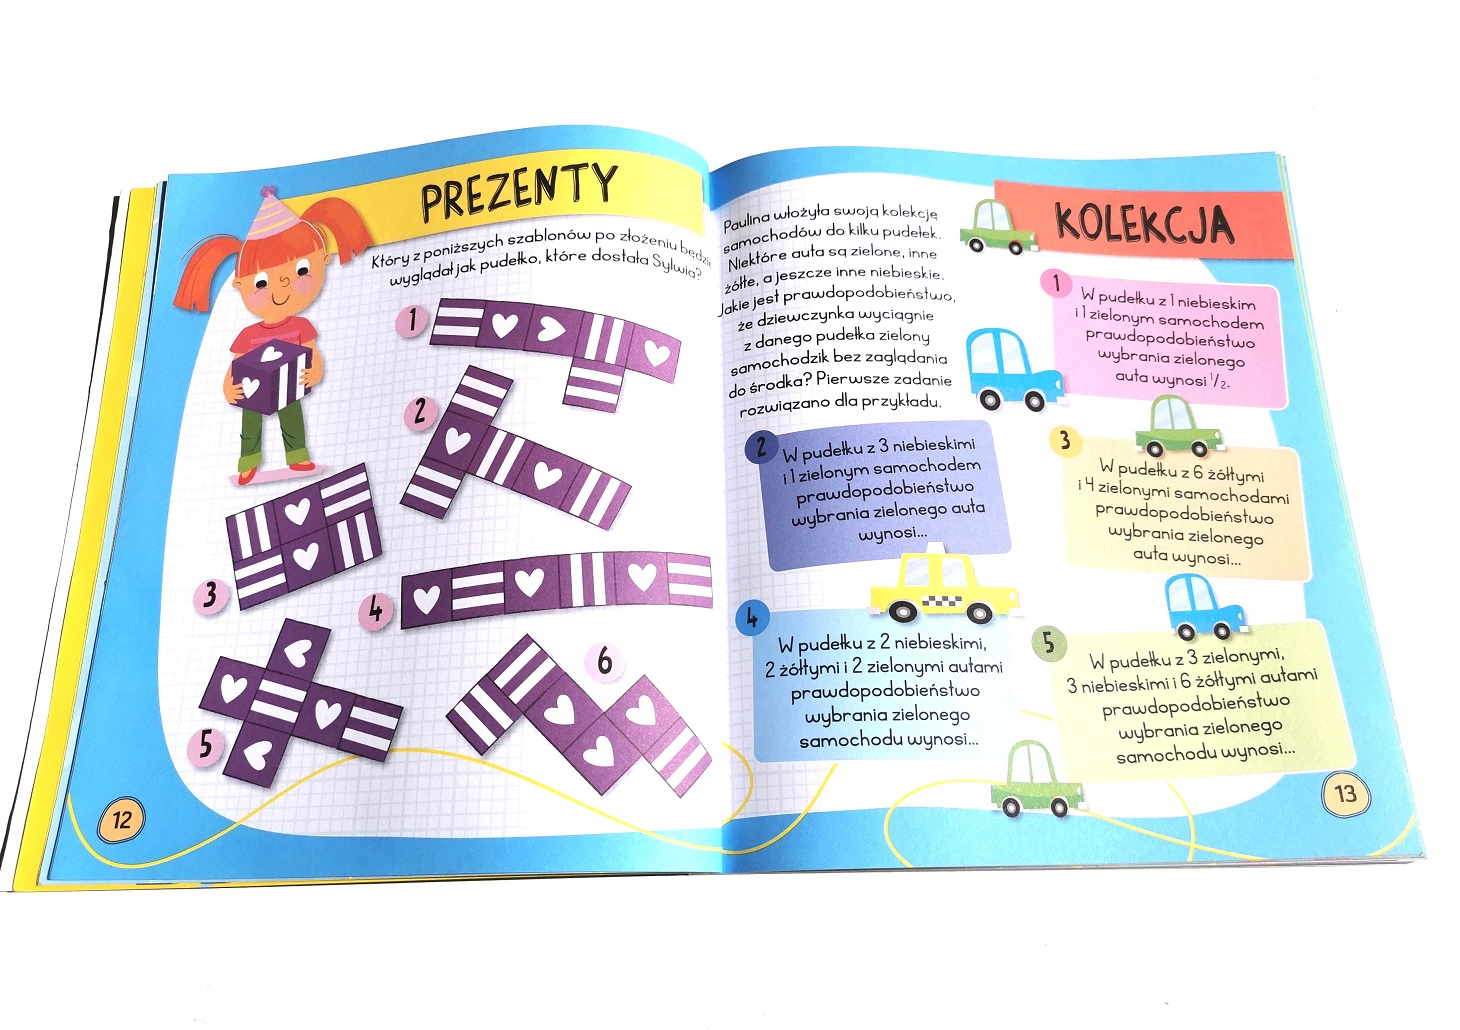 PREZENTY
Który z poniższych szablonów po złożeniu
wyglądał jak pudełko, które dostała Sylwia?
1
2
3
4
5
6
12
KOLEKCJA
Paulina włożyła swoją kolekcję
samochodów do kilku pudełek.
Niektóre auta są zielone, inne
żółte, a jeszcze inne niebieskie.
Jakie jest prawdopodobieństwo,
że dziewczynka wyciągnie
z danego pudełka zielony
samochodzik bez zaglądania
do środka? Pierwsze zadanie
rozwiązano dla przykładu.
1
W pudełku z 1 niebieskim
i 1 zielonym samochodem
prawdopodobieństwo
wybrania zielonego
auta wynosi 1/2.
2
W pudełku z 3 niebieskimi
i 1 zielonym samochodem
prawdopodobieństwo
wybrania zielonego auta
wynosi...
3
W pudełku z 6 żółtymi
i 4 zielonymi samochodami
prawdopodobieństwo
wybrania zielonego
auta wynosi...
4
W pudełku z 2 niebieskimi,
2 żółtymi i 2 zielonymi autami
prawdopodobieństwo
wybrania zielonego
samochodu wynosi...
5
W pudełku z 3 zielonymi,
3 niebieskimi i 6 żółtymi autami
prawdopodobieństwo
wybrania zielonego
samochodu wynosi...
13